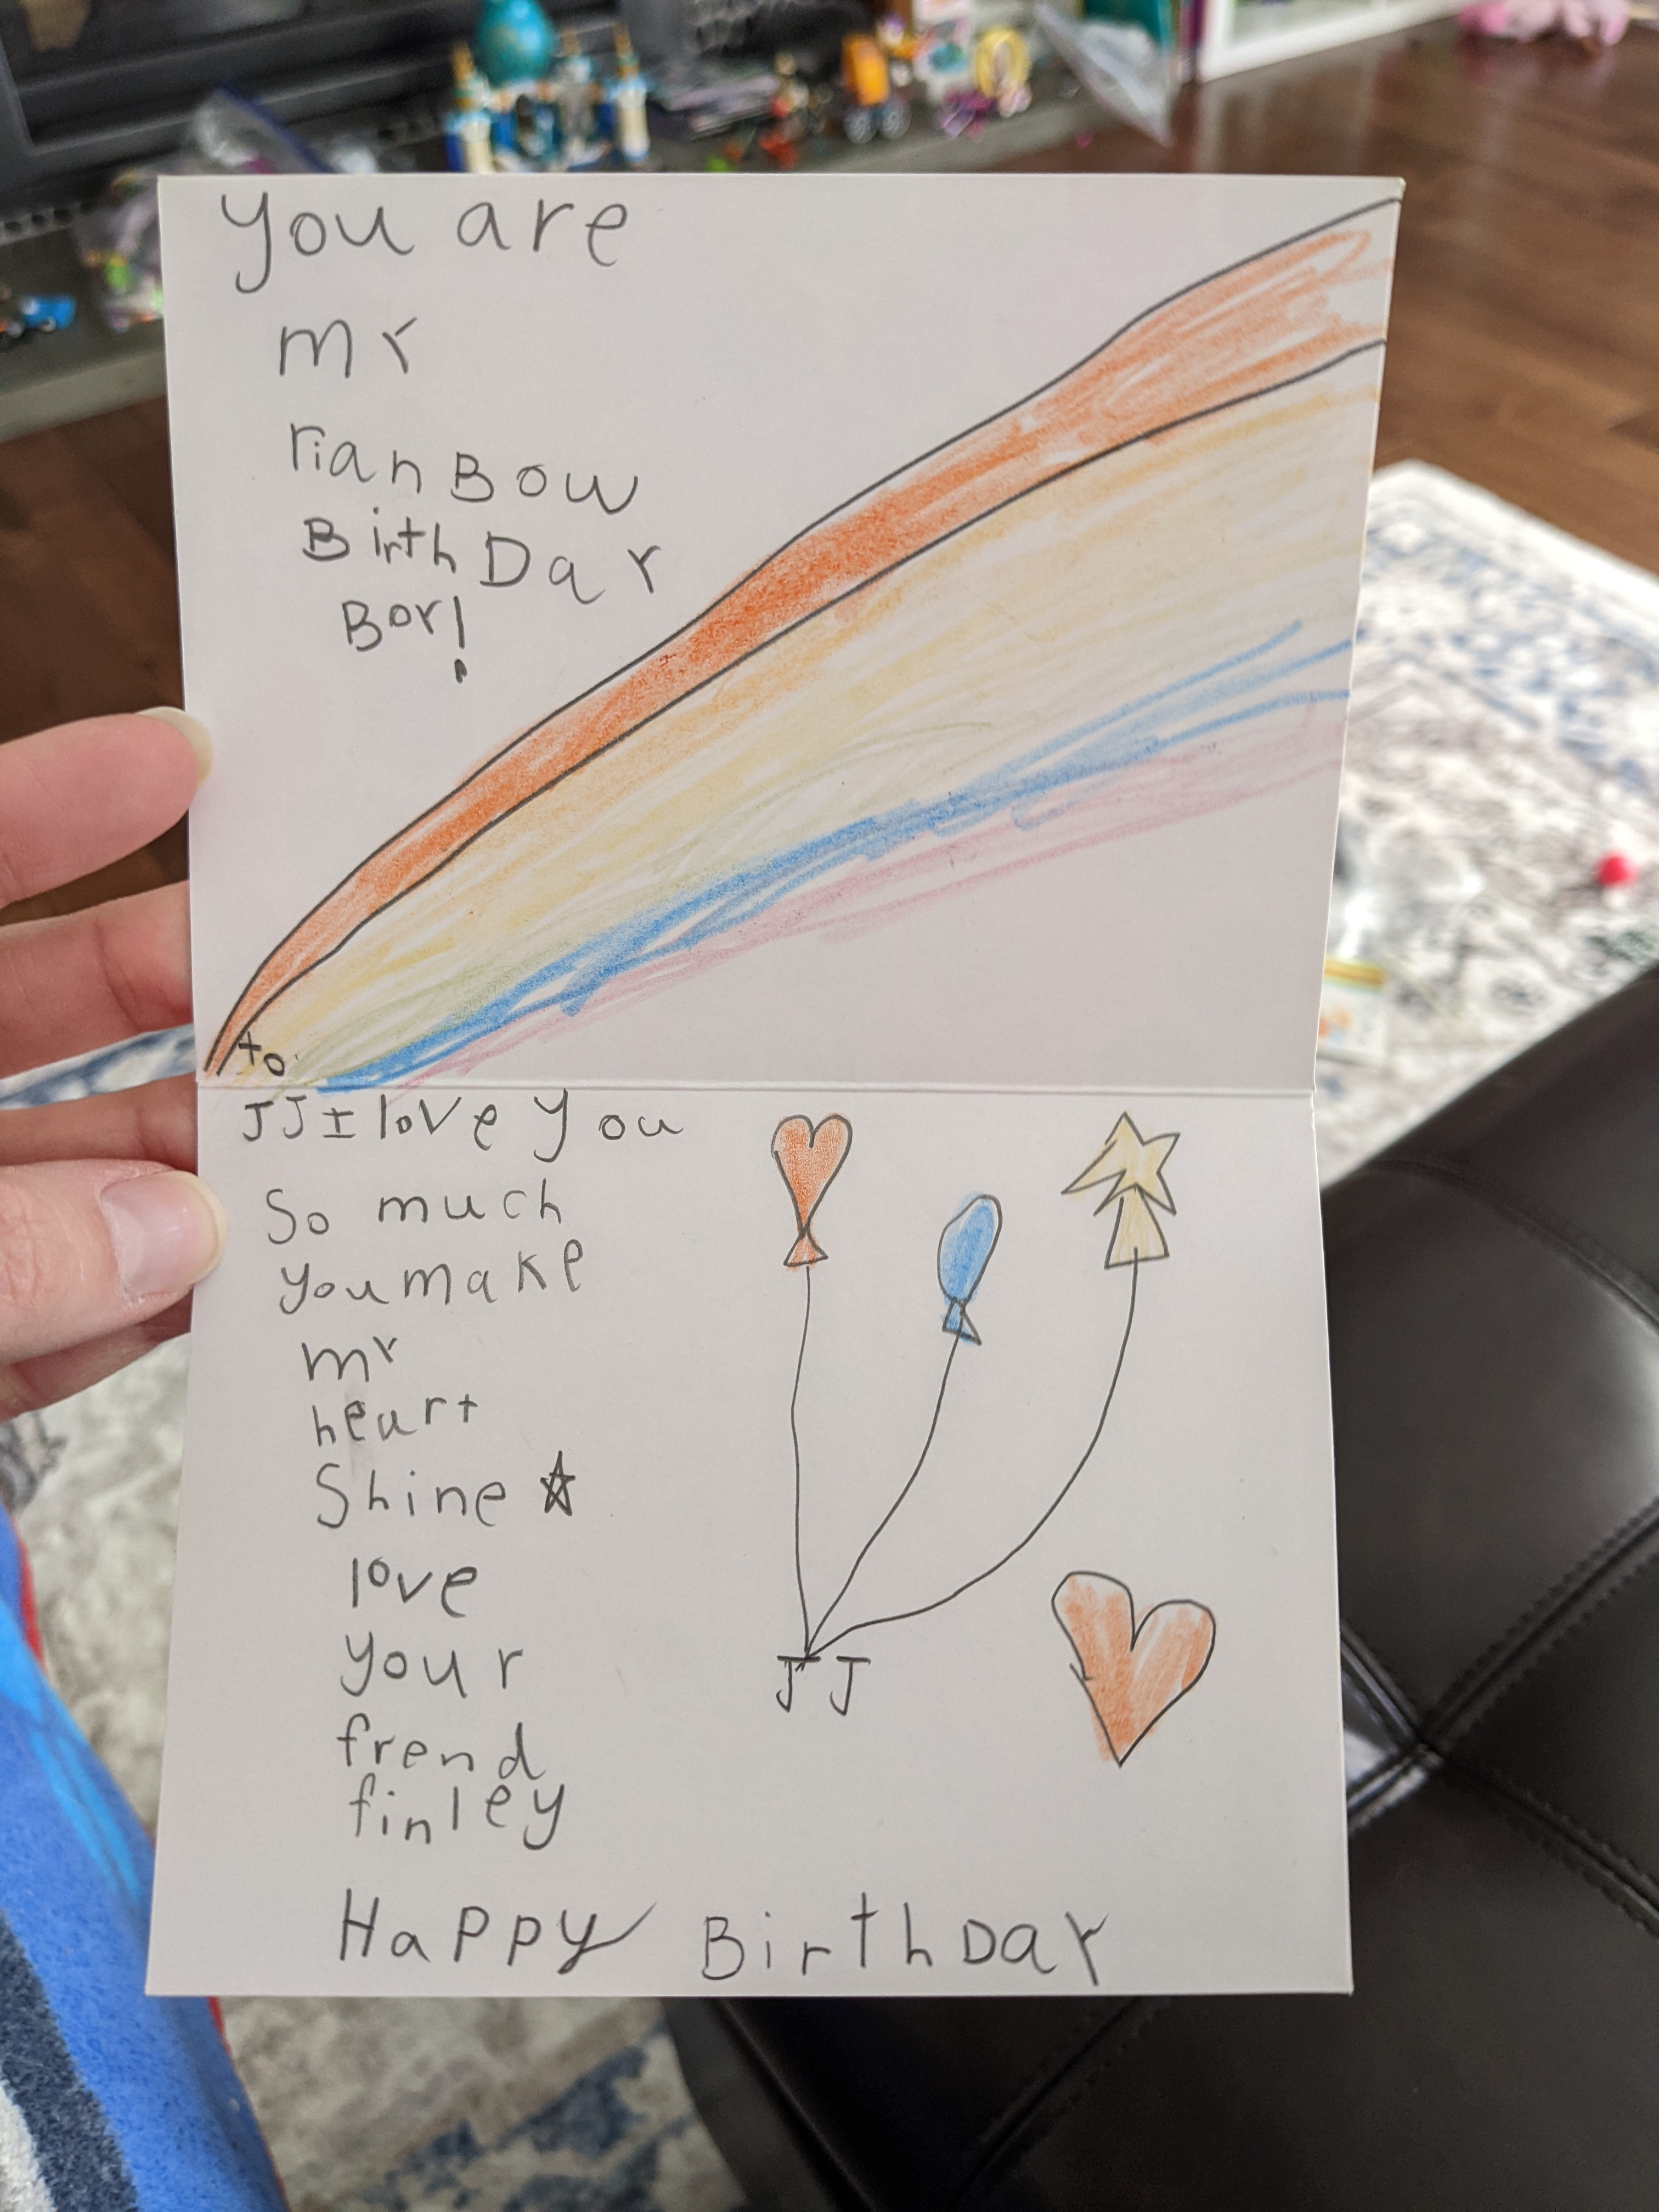 you are
my
rianBow
BirthDay
Boy!
to
JJ I love you
So much
you make
my
heart
Shine
love
your
frend
finley
JJ
Happy BirthDay